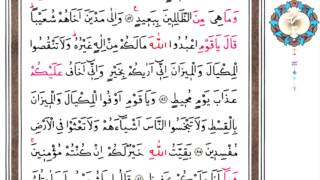 وَمَا هِىَ مِنَ الظَّالِمِينَ بِبَعِيدٍ ۞ وَاِلٰى مَدْيَنَ اَخَاهُمْ شُعَيْبًا
قَالَ يَاقَوْمِ اعْبُدُوا اللّٰهَ مَالَكُمْ مِنْ اِلٰهٍ غَيْرُهُ وَلَا تَنْقُصُوا
الْمِكْيَالَ وَالْمِيزَانَ اِنِّى اَرٰيكُمْ بِخَيْرٍ وَاِنِّى اَخَافُ عَلَيْكُمْ
عَذَابَ يَوْمٍ مُحِيطٍ ۞ وَيَاقَوْمِ اَوْفُوا الْمِكْيَالَ وَالْمِيزَانَ
بِالْقِسْطِ وَلَا تَبْخَسُوا النَّاسَ اَشْيَاۤءَهُمْ وَلَا تَعْثَوْا فِى الْاَرْضِ
مُفْسِدِينَ ۞ بَقِيَّتُ اللّٰهِ خَيْرٌ لَكُمْ اِنْ كُنْتُمْ مُؤْمِنِينَ